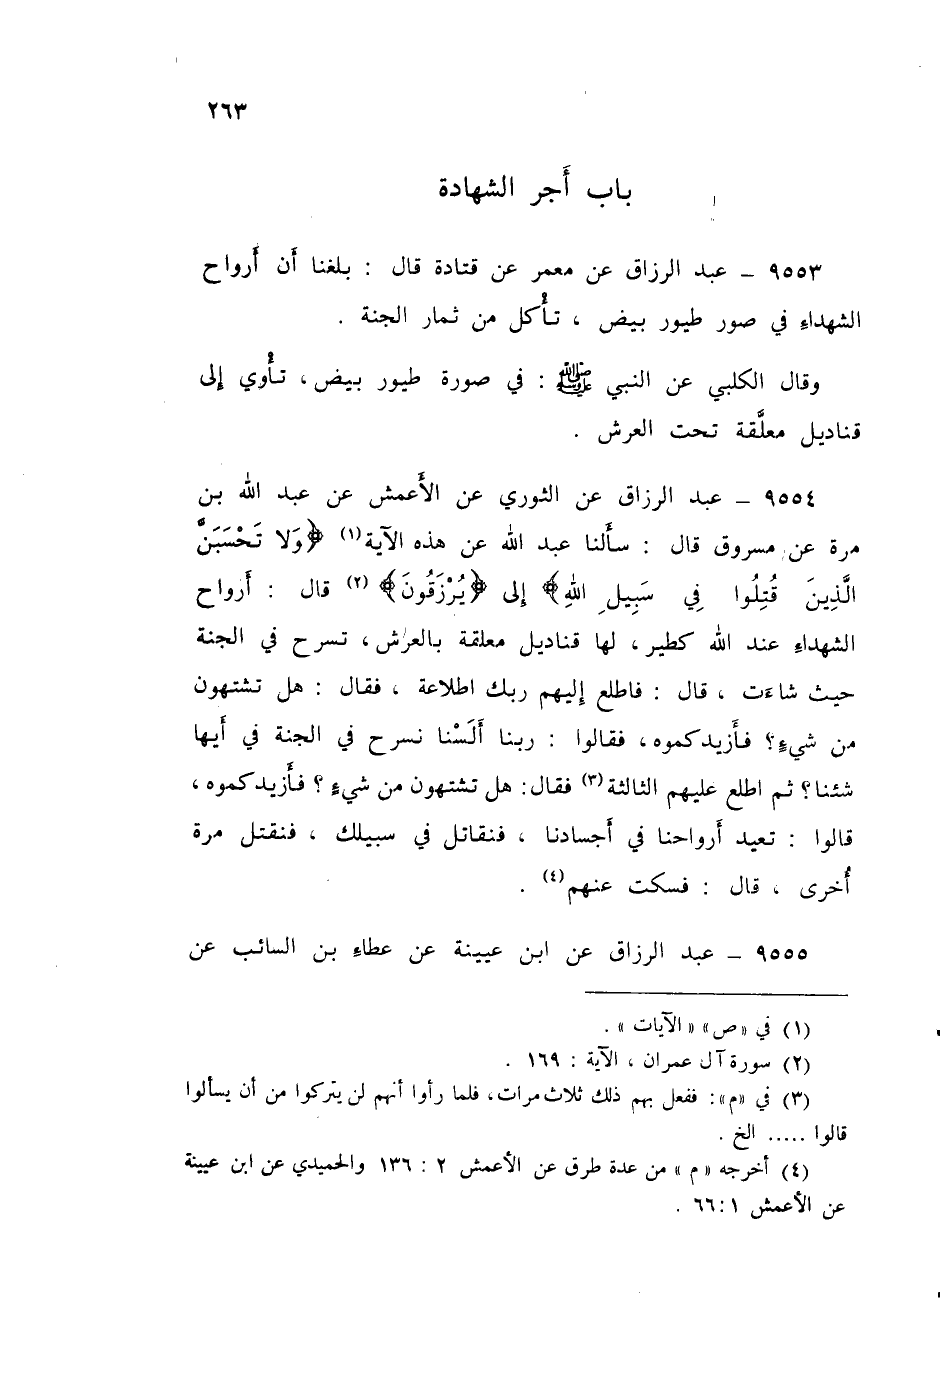 ٢٦٣
باب أَجر الشهادة
٩٥٥٣ – عبد الرزاق عن معمر عن قتادة قال : بلغنا أن أَرواح
الشهداءِ في صور طيور بيض ، تأْكل من ثمار الجنة .
وقال الكلبي عن النبي ﷺ : في صورة طيور بيض، تأْوي إلى
قناديل معلَّقة تحت العرش .
٩٥٥٤ – عبد الرزاق عن الثوري عن الأَعمش عن عبد الله بن
مرة عن مسروق قال : سأَلنا عبد الله عن هذه الآية(١) ﴿وَلا تَحْسَبَنَّ
الَّذِينَ قُتِلُوا فِي سَبِيلِ اللهِ﴾ إلى ﴿يُرْزَقُونَ﴾ (٢) قال : أَرواح
الشهداءِ عند الله كطير، لها قناديل معلقة بالعرش، تسرح في الجنة
حيث شاءَت ، قال : فاطلع إليهم ربك اطلاعة ، فقال : هل تشتهون
من شيءٍ؟ فأَزيدكموه، فقالوا : ربنا أَلَسْنا نسرح في الجنة في أَيها
شئنا؟ ثم اطلع عليهم الثالثة(٣) فقال: هل تشتهون من شيءٍ ؟ فأَزيدكموه ،
قالوا : تعيد أَرواحنا في أَجسادنا ، فنقاتل في سبيلك ، فنقتل مرة
أُخرى ، قال : فسكت عنهم(٤) .
٩٥٥٥ – عبد الرزاق عن ابن عيينة عن عطاءِ بن السائب عن
(١) في «ص» «الآيات» .
(٢) سورة آل عمران ، الآية : ١٦٩ .
(٣) في «م»: ففعل بهم ذلك ثلاث مرات، فلما رأوا أنهم لن يتركوا من أن يسألوا
قالوا ..... الخ .
(٤) أخرجه «م» من عدة طرق عن الأعمش ٢ : ١٣٦ والحميدي عن ابن عيينة
عن الأعمش ١ :٦٦ .